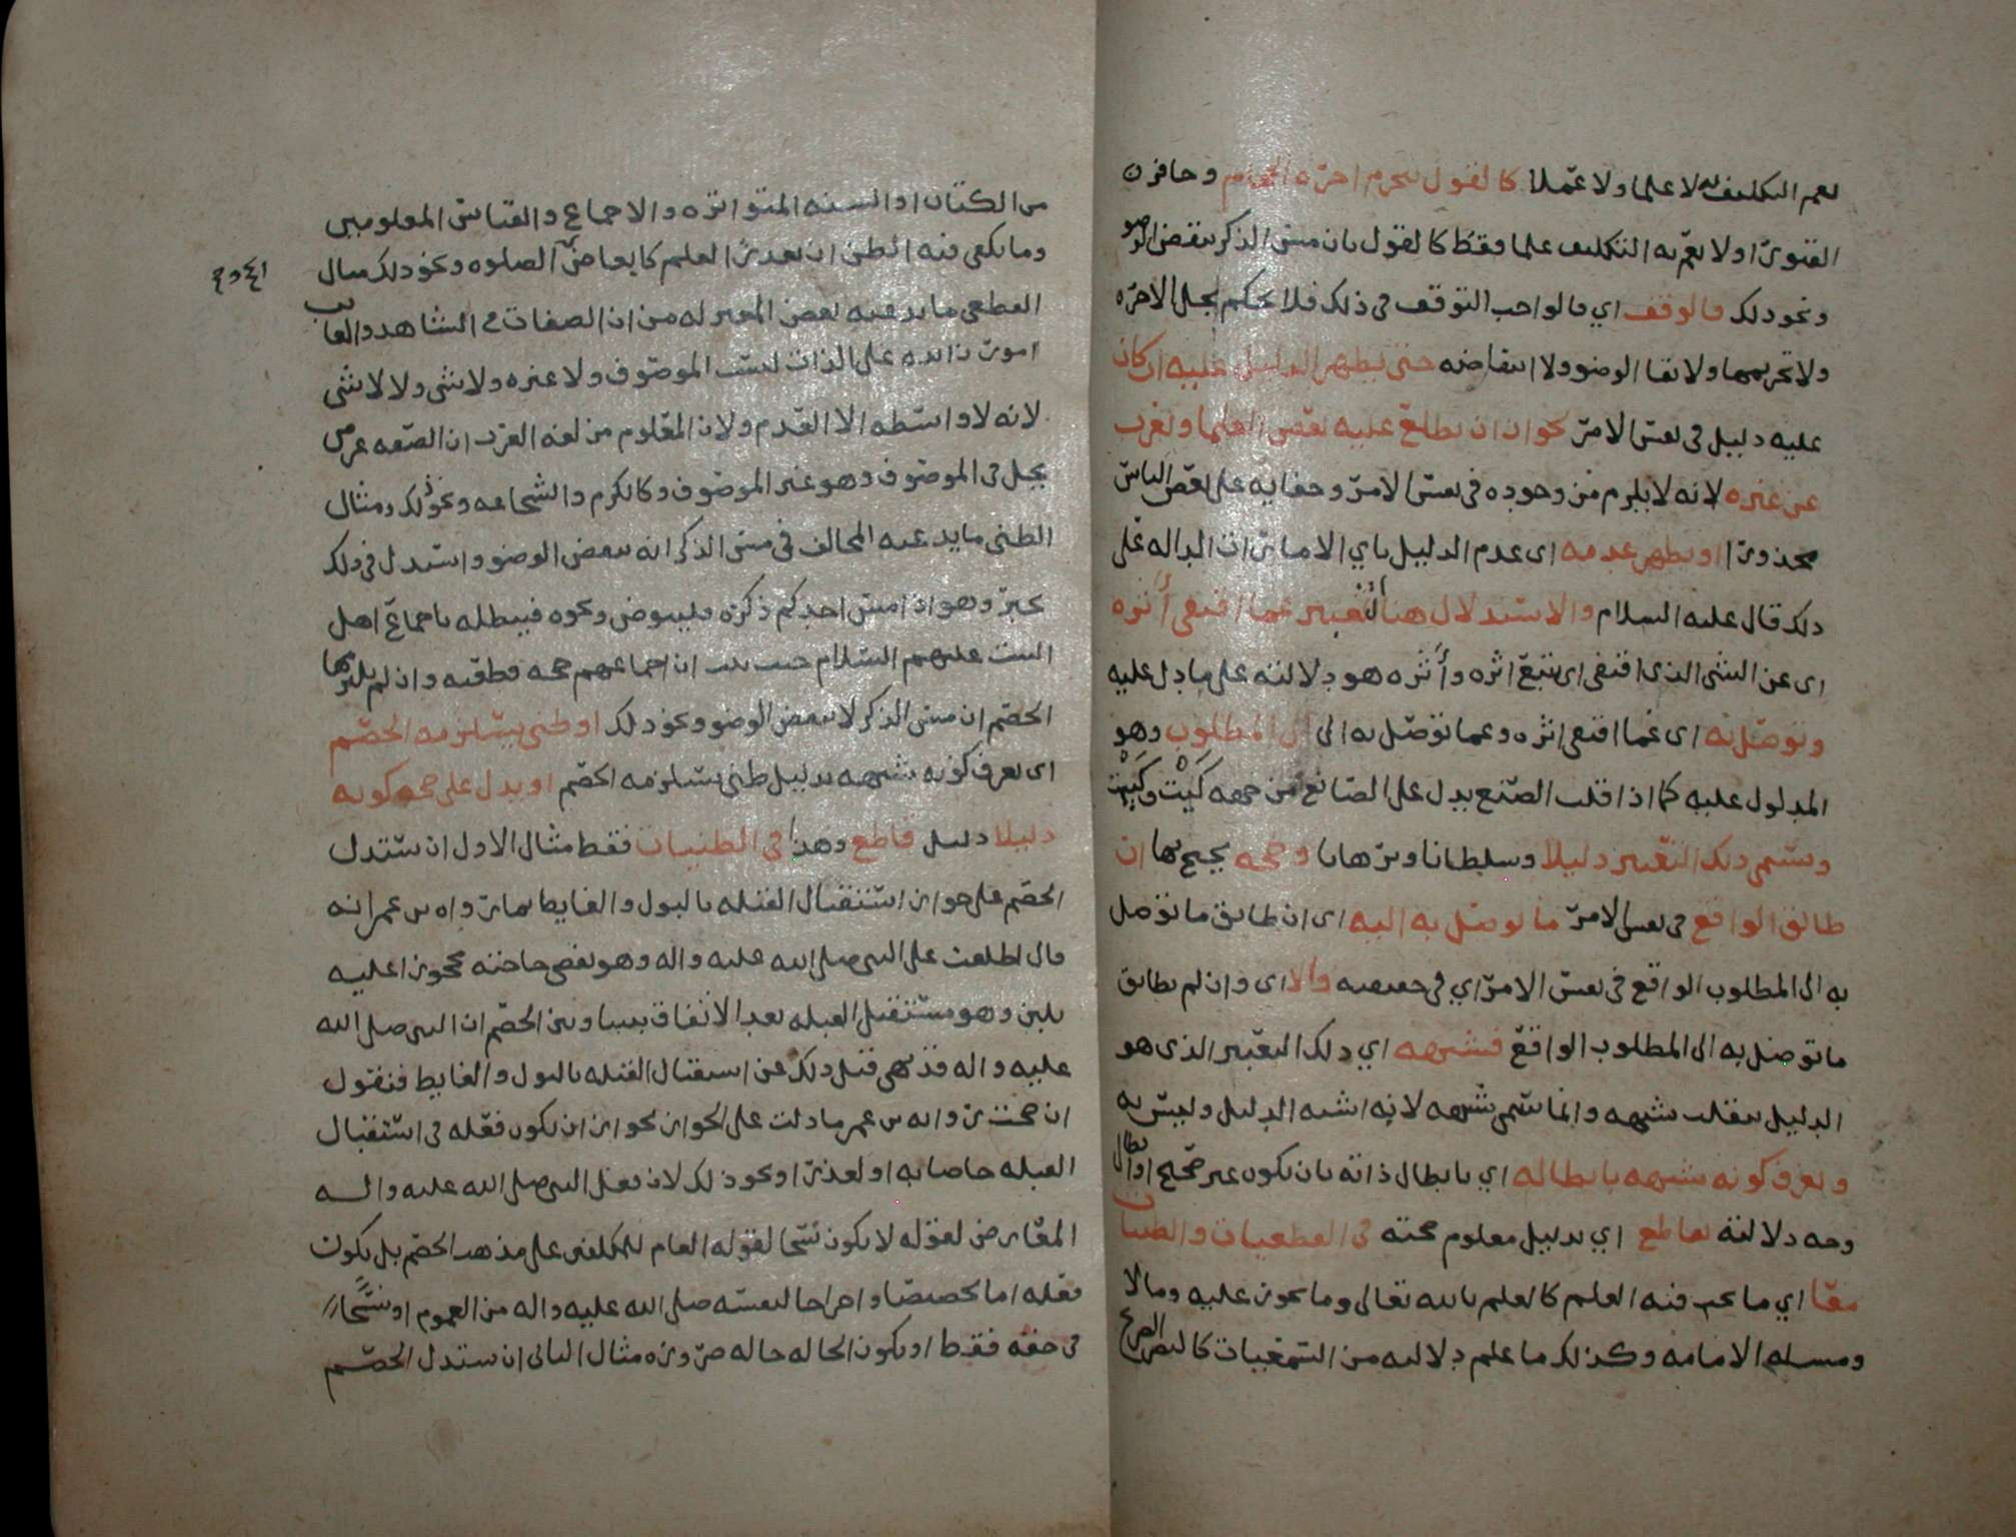 نعم التكليف به لا علما ولا عملا كالقول بتحريم اجرة الحجام وحافر
الفتوى او لا نعم به التكليف علما فقط كالقول بان مس الذكر ينقض الوضو
ونحو ذلك فالوقف اي فالواجب التوقف في ذلك فلا يحكم بحل الاجرة
ولا تحريمها ولا بقا الوضو ولا انتقاضه حتى يظهر الدليل عليه ان كان
عليه دليل في نفس الامر نحو ان يطلع عليه بعض العلما ويغرب
عن غيره لانه لا يلزم من وجوده في نفس الامر وخفايه على بعض الناس
محذورا او يظهر عدمه اى عدم الدليل باي الامارات الداله على
ذلك قال عليه السلام والاستدلال هنا التعبير عما اقتفى أثره
اى عن الشى الذى اقتفى اى تتبع اثره وأثره هو دلالته على ما دل عليه
وتوصل به اى عما اقتفى اثره وعما توصل به الى المطلوب وهو
المدلول عليه كما اذا قلت الصنع يدل على الصانع من جهه كَيْت وكَيْت
ويسمى ذلك التعبير دليلا وسلطانا وبرهانا وحجه يحتج بها ان
طابق الواقع في نفس الامر ما توصل به اليه اى ان طابق ما توصل
به الى المطلوب الواقع في نفس الامر اي في حقيقته والا اى وان لم يطابق
ما توصل به الى المطلوب الواقع فشبهه اي ذلك التعبير الذى هو
الدليل ينقلب شبهه وانما سمى شبهه لانه اشبه الدليل وليس به
ويعرف كونه شبهه بابطاله اي بابطال ذاته بان يكون غير صحيح او ابطال
وجه دلالته بقاطع اي بدليل معلوم صحته في القطعيات والظنيات
معا اي ما يجب فيه العلم كالعلم بالله تعالى وما يجوز عليه وما لا
ومسله الامامه وكذلك ما علم دلالته من السمعيات كالنص الصريح
من الكتاب او السنه المتواتره والاجماع والقياس المعلومين
وما يكفي فيه الظن ان تعذر العلم كابعاض الصلوه ونحو ذلك مثال
القطعى ما يدعيه بعض المعتزله من ان الصفات في الشاهد والغايب
امور زايده على الذات ليست الموصوف ولا غيره ولا شى ولا لا شى
لانه لا واسطه الا العدم ولان المعلوم من لغه العرب ان الصفه عرض
يحل في الموصوف وهو غير الموصوف وكالكرم والشجاعه ونحو ذلك ومثال
الظنى ما يدعيه المخالف في مس الذكر انه ينقض الوضو واستدل في ذلك
بخبر وهو اذا مس احدكم ذكره فليتوض ونحوه فيبطله باجماع اهل
البيت عليهم السلام حيث ثبت ان اجماعهم حجه قطعيه وان لم يلتزمها
الخصم ان مس الذكر لا ينقض الوضو ونحو ذلك او ظنى يستلزمه الخصم
اى يعرف كونه شبهه بدليل ظنى يستلزمه الخصم او يدل على صحه كونه
دليلا دليل قاطع وهذا في الظنيات فقط مثال الاول ان يستدل
الخصم على جواز استقبال القبله بالبول والغايط بما رواه بن عمر انه
قال اطلعت على النبى صلى الله عليه واله وهو يقضى حاجته محجورا عليه
بلبن وهو مستقبل القبله بعد الاتفاق بيننا وبين الخصم ان النبى صلى الله
عليه واله قد نهى قبل ذلك عن استقبال القبله بالبول والغايط فنقول
ان صحت روايه بن عمر ما دلت على الجواز لجواز ان يكون فعله في استقبال
القبله خاصا به او لعذر او نحو ذلك لان فعل النبى صلى الله عليه واله
المعارض لقوله لا يكون نسخا لقوله العام للمكلفين على مذهب الخصم بل يكون
فعله اما تخصيصا واخراجا لنفسه صلى الله عليه واله من العموم او نسخا
في حقه فقط او يكون الحاله حاله ضروره مثال الثانى ان يستدل الخصم